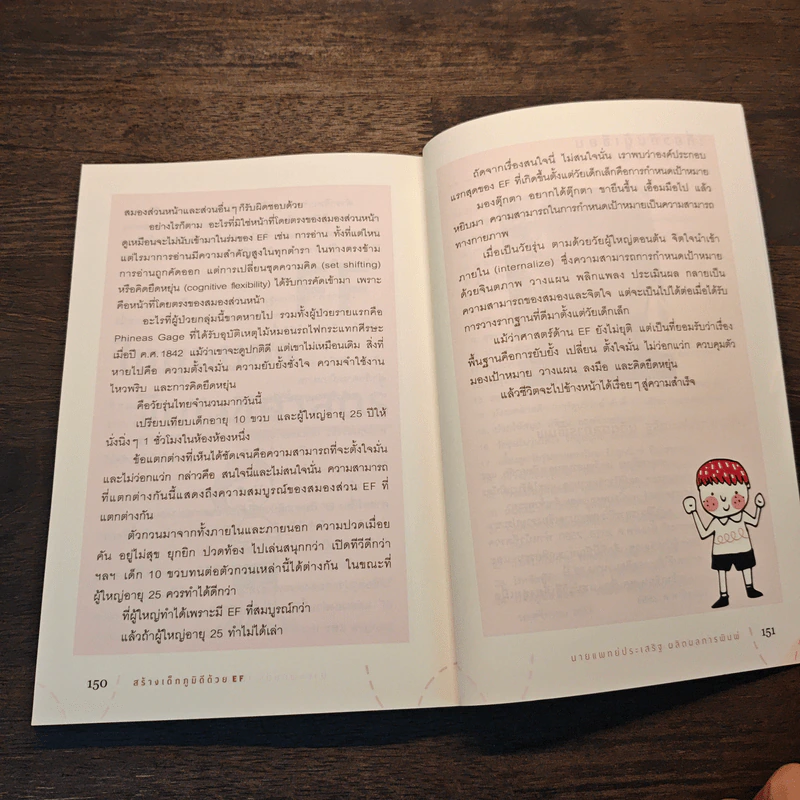 สมองส่วนหน้าและส่วนอื่นๆ ก็รับผิดชอบด้วย
อย่างไรก็ตาม อะไรที่มิใช่หน้าที่โดยตรงของสมองส่วนหน้า
ดูเหมือนจะไม่นับเข้ามาในร่มของ EF เช่น การอ่าน ทั้งที่แต่ไหน
แต่ไรมาการอ่านมีความสำคัญสูงในทุกตำรา ในทางตรงข้าม
การอ่านถูกคัดออก แต่การเปลี่ยนชุดความคิด (set shifting)
หรือคิดยืดหยุ่น (cognitive flexibility) ได้รับการคัดเข้ามา เพราะ
คือหน้าที่โดยตรงของสมองส่วนหน้า
อะไรที่ผู้ป่วยกลุ่มนี้ขาดหายไป รวมทั้งผู้ป่วยรายแรกคือ
Phineas Gage ที่ได้รับอุบัติเหตุไม้หมอนรถไฟกระแทกศีรษะ
เมื่อปี ค.ศ. 1842 แม้ว่าเขาจะดูปกติดี แต่เขาไม่เหมือนเดิม สิ่งที่
หายไปคือ ความตั้งใจมั่น ความยับยั้งชั่งใจ ความจำใช้งาน
ไหวพริบ และการคิดยืดหยุ่น
คือวัยรุ่นไทยจำนวนมากวันนี้
เปรียบเทียบเด็กอายุ 10 ขวบ และผู้ใหญ่อายุ 25 ปีให้
นั่งนิ่งๆ 1 ชั่วโมงในห้องห้องหนึ่ง
ข้อแตกต่างที่เห็นได้ชัดเจนคือความสามารถที่จะตั้งใจมั่น
และไม่วอกแวก กล่าวคือ สนใจนี่และไม่สนใจนั่น ความสามารถ
ที่แตกต่างกันนี้แสดงถึงความสมบูรณ์ของสมองส่วน EF ที่
แตกต่างกัน
ตัวกวนมาจากทั้งภายในและภายนอก ความปวดเมื่อย
คัน อยู่ไม่สุข ยุกยิก ปวดท้อง ไปเล่นสนุกกว่า เปิดทีวีดีกว่า
ฯลฯ เด็ก 10 ขวบทนต่อตัวกวนเหล่านี้ได้ต่างกัน ในขณะที่
ผู้ใหญ่อายุ 25 ควรทำได้ดีกว่า
ที่ผู้ใหญ่ทำได้เพราะมี EF ที่สมบูรณ์กว่า
แล้วถ้าผู้ใหญ่อายุ 25 ทำไม่ได้เล่า
150 สร้างเด็กภูมิดีด้วย EF
ถัดจากเรื่องสนใจนี่ ไม่สนใจนั่น เราพบว่าองค์ประกอบ
แรกสุดของ EF ที่เกิดขึ้นตั้งแต่วัยเด็กเล็กคือการกำหนดเป้าหมาย
มองตุ๊กตา อยากได้ตุ๊กตา ขายืนขึ้น เอื้อมมือไป แล้ว
หยิบมา ความสามารถในการกำหนดเป้าหมายเป็นความสามารถ
ทางกายภาพ
เมื่อเป็นวัยรุ่น ตามด้วยวัยผู้ใหญ่ตอนต้น จิตใจนำเข้า
ภายใน (internalize) ซึ่งความสามารถการกำหนดเป้าหมาย
ด้วยจินตภาพ วางแผน พลิกแพลง ประเมินผล กลายเป็น
ความสามารถของสมองและจิตใจ แต่จะเป็นไปได้ต่อเมื่อได้รับ
การวางรากฐานที่ดีมาตั้งแต่วัยเด็กเล็ก
แม้ว่าศาสตร์ด้าน EF ยังไม่ยุติ แต่เป็นที่ยอมรับว่าเรื่อง
พื้นฐานคือการยับยั้ง เปลี่ยน ตั้งใจมั่น ไม่วอกแวก ควบคุมตัว
มองเป้าหมาย วางแผน ลงมือ และคิดยืดหยุ่น
แล้วชีวิตจะไปข้างหน้าได้เรื่อยๆ สู่ความสำเร็จ
นายแพทย์ประเสริฐ ผลิตผลการพิมพ์ 151